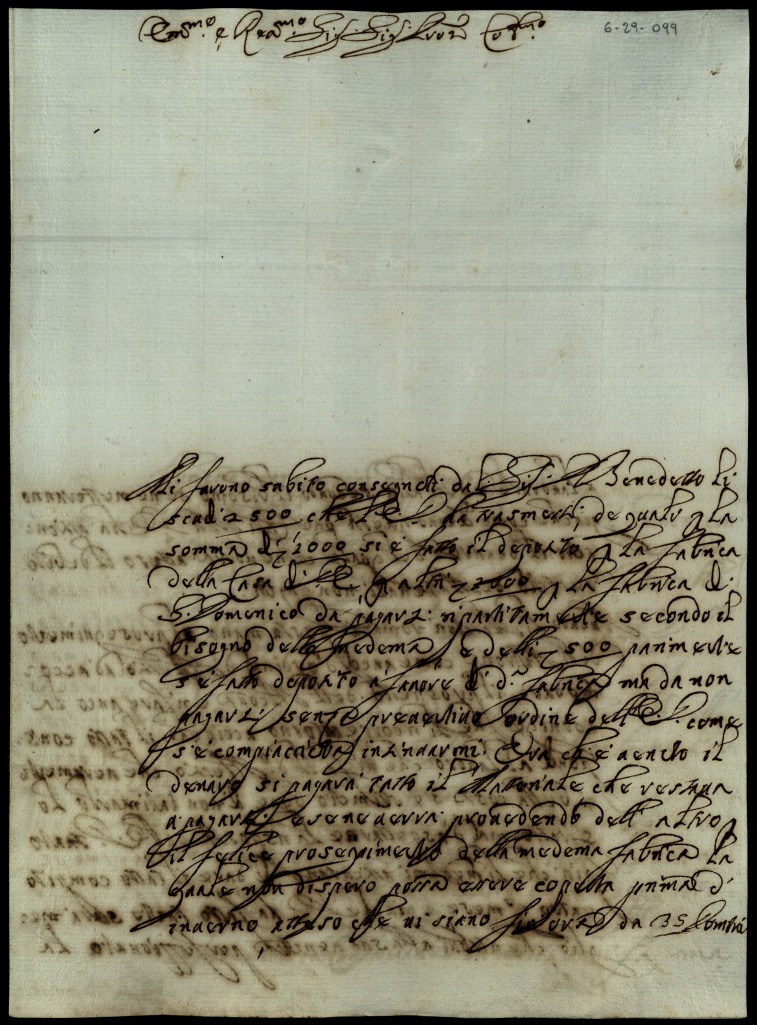 Em.mo e Rev.mo Sig.r Sig.r Pron Col.mo
6-29-099
Mi furono subito consegnati dal Sig.r Benedetto li
scudi 2500 che V.E. ha trasmessi, de quali p la
somma di 1000 si è fatto il deposito p la fabrica
della Casa di V.E. p altri 1000 p la fabrica di
S. Domenico da pagarsi ripartitamente secondo il
bisogno della medema, e delli 500 parimente
s'è fatto deposito a favore di d.a fabrica ma da non
pagarsi senza preventivo ordine dell' E.V. come
s'è compiacciuta inzinuarmi. Ora che è venuto il
denaro si pagarà tutto il Materiale che restava
a pagarsi e se ne averrà provedendo dell' altro p
il felice proseguimento della medema fabrica la
quale non dispero possa essere coperta prima d'
inverno atteso che vi siano sin' ora da 35 homini